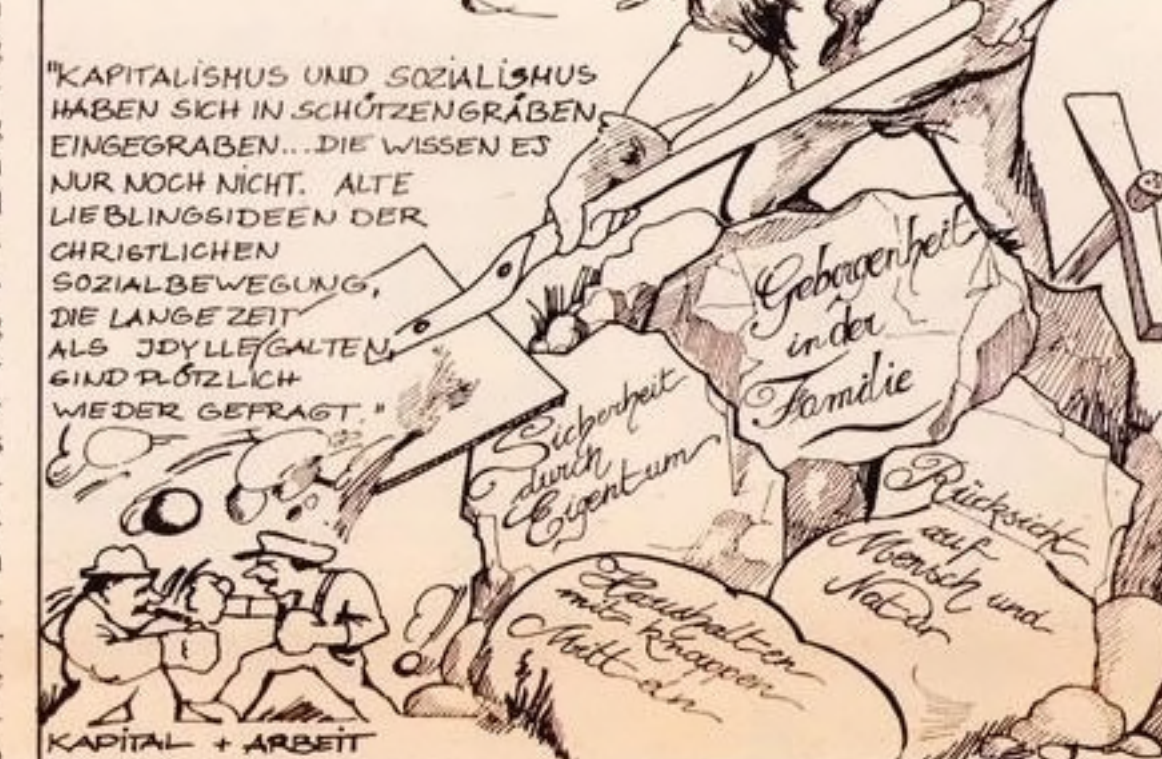 "KAPITALISMUS UND SOZIALISMUS
HABEN SICH IN SCHÜTZENGRÄBEN
EINGEGRABEN...DIE WISSEN ES
NUR NOCH NICHT. ALTE
LIEBLINGSIDEEN DER
CHRISTLICHEN
SOZIALBEWEGUNG,
DIE LANGE ZEIT
ALS IDYLLE GALTEN,
SIND PLÖTZLICH
WIEDER GEFRAGT."
Geborgenheit
in der
Familie
Sicherheit
durch
Eigentum
Rücksicht
auf
Mensch und
Natur
Haushalten
mit knappen
Mitteln
KAPITAL + ARBEIT